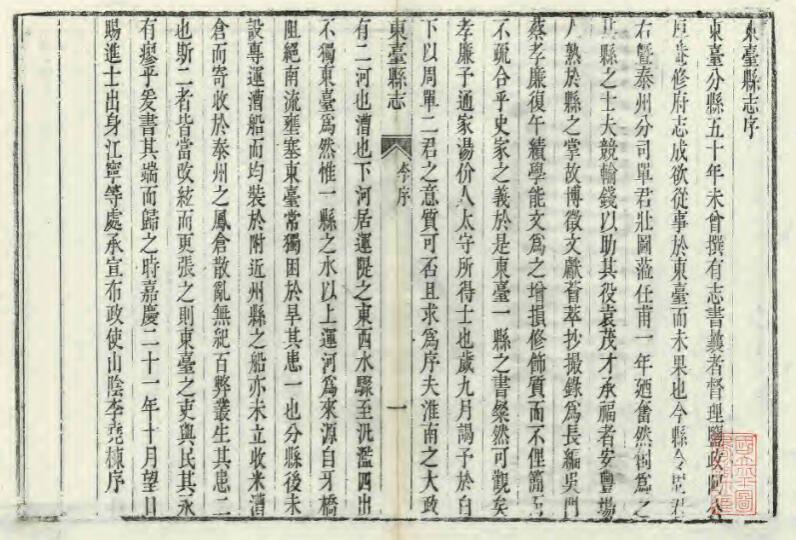 東臺縣志序
東臺分縣五十年未曾撰有志書曩者督理鹽政阿公
修府志成欲從事於東臺而未果也今縣令周君
右暨泰州分司單君壯圖蒞任甫一年廼奮然創爲之
縣之士夫競輸錢以助其役袁茂才承福者安豐場
人熟於縣之掌故博徵文獻薈萃抄撮錄爲長編吳門
蔡孝廉復午績學能文爲之增損修飾質而不俚簡而
不疏合乎史家之義於是東臺一縣之書粲然可觀矣
孝廉予通家湯价人太守所得士也歲九月謁予於白
下以周單二君之意質可否且求爲序夫淮南之大政
東臺縣志
序
一
有二河也漕也下河居運隄之東西水驟至汎濫四出
不獨東臺爲然惟一縣之水以上運河爲來源自牙橋
阻絕南流壅塞東臺常獨困於旱其患一也分縣後未
設專運漕船而均裝於附近州縣之船亦未立收米漕
倉而寄收於泰州之鳳倉散亂無紀百弊叢生其患二
也斯二者皆當改絃而更張之則東臺之吏與民其永
有瘳乎爰書其端而歸之時嘉慶二十一年十月望日
賜進士出身江寧等處承宣布政使山陰李堯棟序